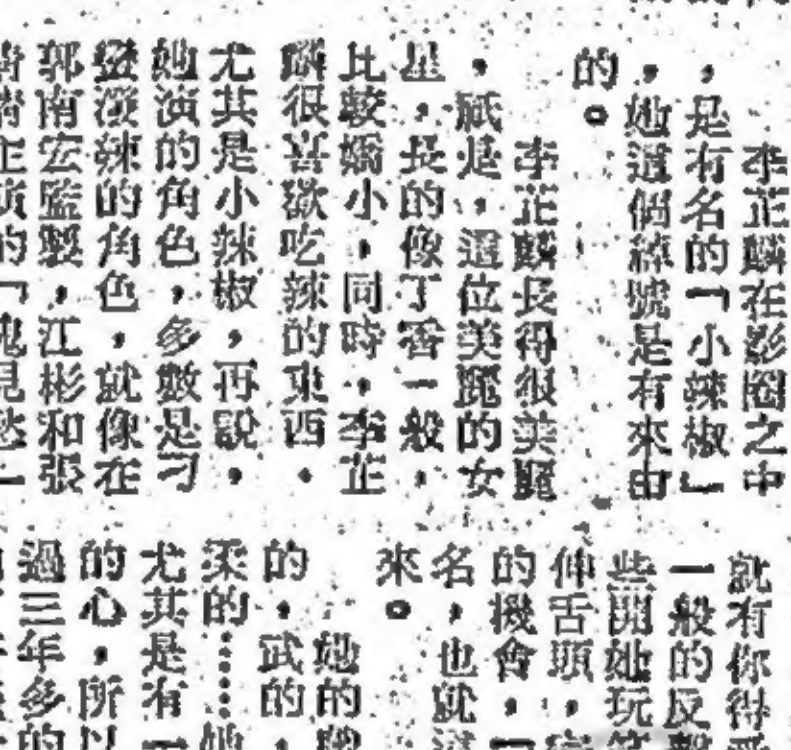 李芷麟在影圈之中
，是有名的「小辣椒」
，她這個綽號是有來由
的。
李芷麟長得很美麗
，祇是，這位美麗的女
星，長的像丁香一般，
比較嬌小，同時，李芷
麟很喜歡吃辣的東西，
尤其是小辣椒，再說，
她演的角色，多數是刁
蠻潑辣的角色，就像在
郭南宏監製，江彬和張
主演的「鬼見愁」
就有你得
一般的反
些開她玩
伸舌頭，
的機會，
名，也就
來。
她的
的，武的，
柔的……她
尤其是有一
的心，所以
過三年多的